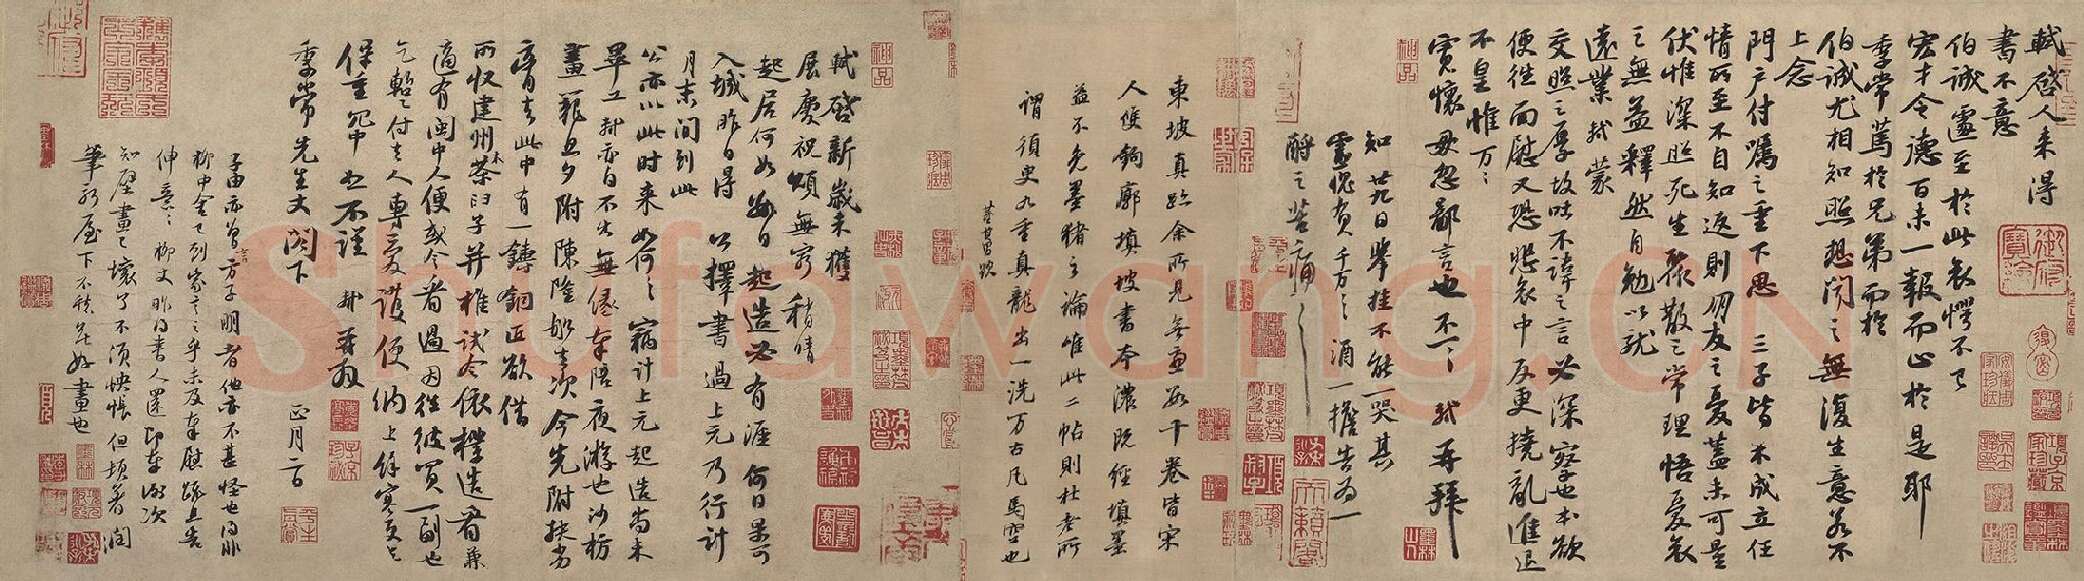 軾啓人来得
書不意
伯誠遽至於此哀愕不已
宏才令德百未一報而止於是耶
季常篤於兄弟而於
伯誠尤相知照想聞之無復生意若不
上念
門户付囑之重下思三子皆未成立任
情所至不自知返則朋友之憂蓋未可量
伏惟深照死生聚散之常理悟憂哀
之無益釋然自勉以就
遠業軾蒙
交照之厚故吐不諱之言必深察也本欲
便往面慰又恐悲哀中反更撓亂進退
不皇惟万々
寬懷毋忽鄙言也不一々軾再拜
知廿九日舉挂不能一哭其
靈愧負千万々酒一擔告為一
酹之苦痛々
東坡真跡余所見無慮數十卷皆宋
人雙鉤廓填坡書本濃既經填墨
益不免墨猪之論唯此二帖則杜老所
謂須臾九重真龍出一洗万古凡馬空也
董其昌跋
軾啓新歲未獲
展慶祝頌無窮稍晴
起居何如數日起造必有涯何日果可
入城昨日得公擇書過上元乃行計
月末間到此
公亦以此時来如何々竊計上元起造尚未
畢工軾亦自不出無緣奉陪夜游也沙枋
畫籠旦夕附陳隆船去次今先附扶劣
膏去此中有一鑄銅匠欲借
所收建州木茶臼子并椎試令依樣造看兼
適有閩中人便或令看過因往彼買一副也
乞暫付去人專愛護便納上餘寒更乞
保重冗中恕不謹軾再拜
季常先生丈閤下 正月二日
子由亦曾言方子明者他亦不甚怪也得非
柳中舍已到家言之乎未及奉慰疏且告
伸意々柳丈昨得書人還即奉謝次
知壁畫已壞了不須怏悵但頓著潤
筆新屋下不愁無好畫也
Shufawang.CN